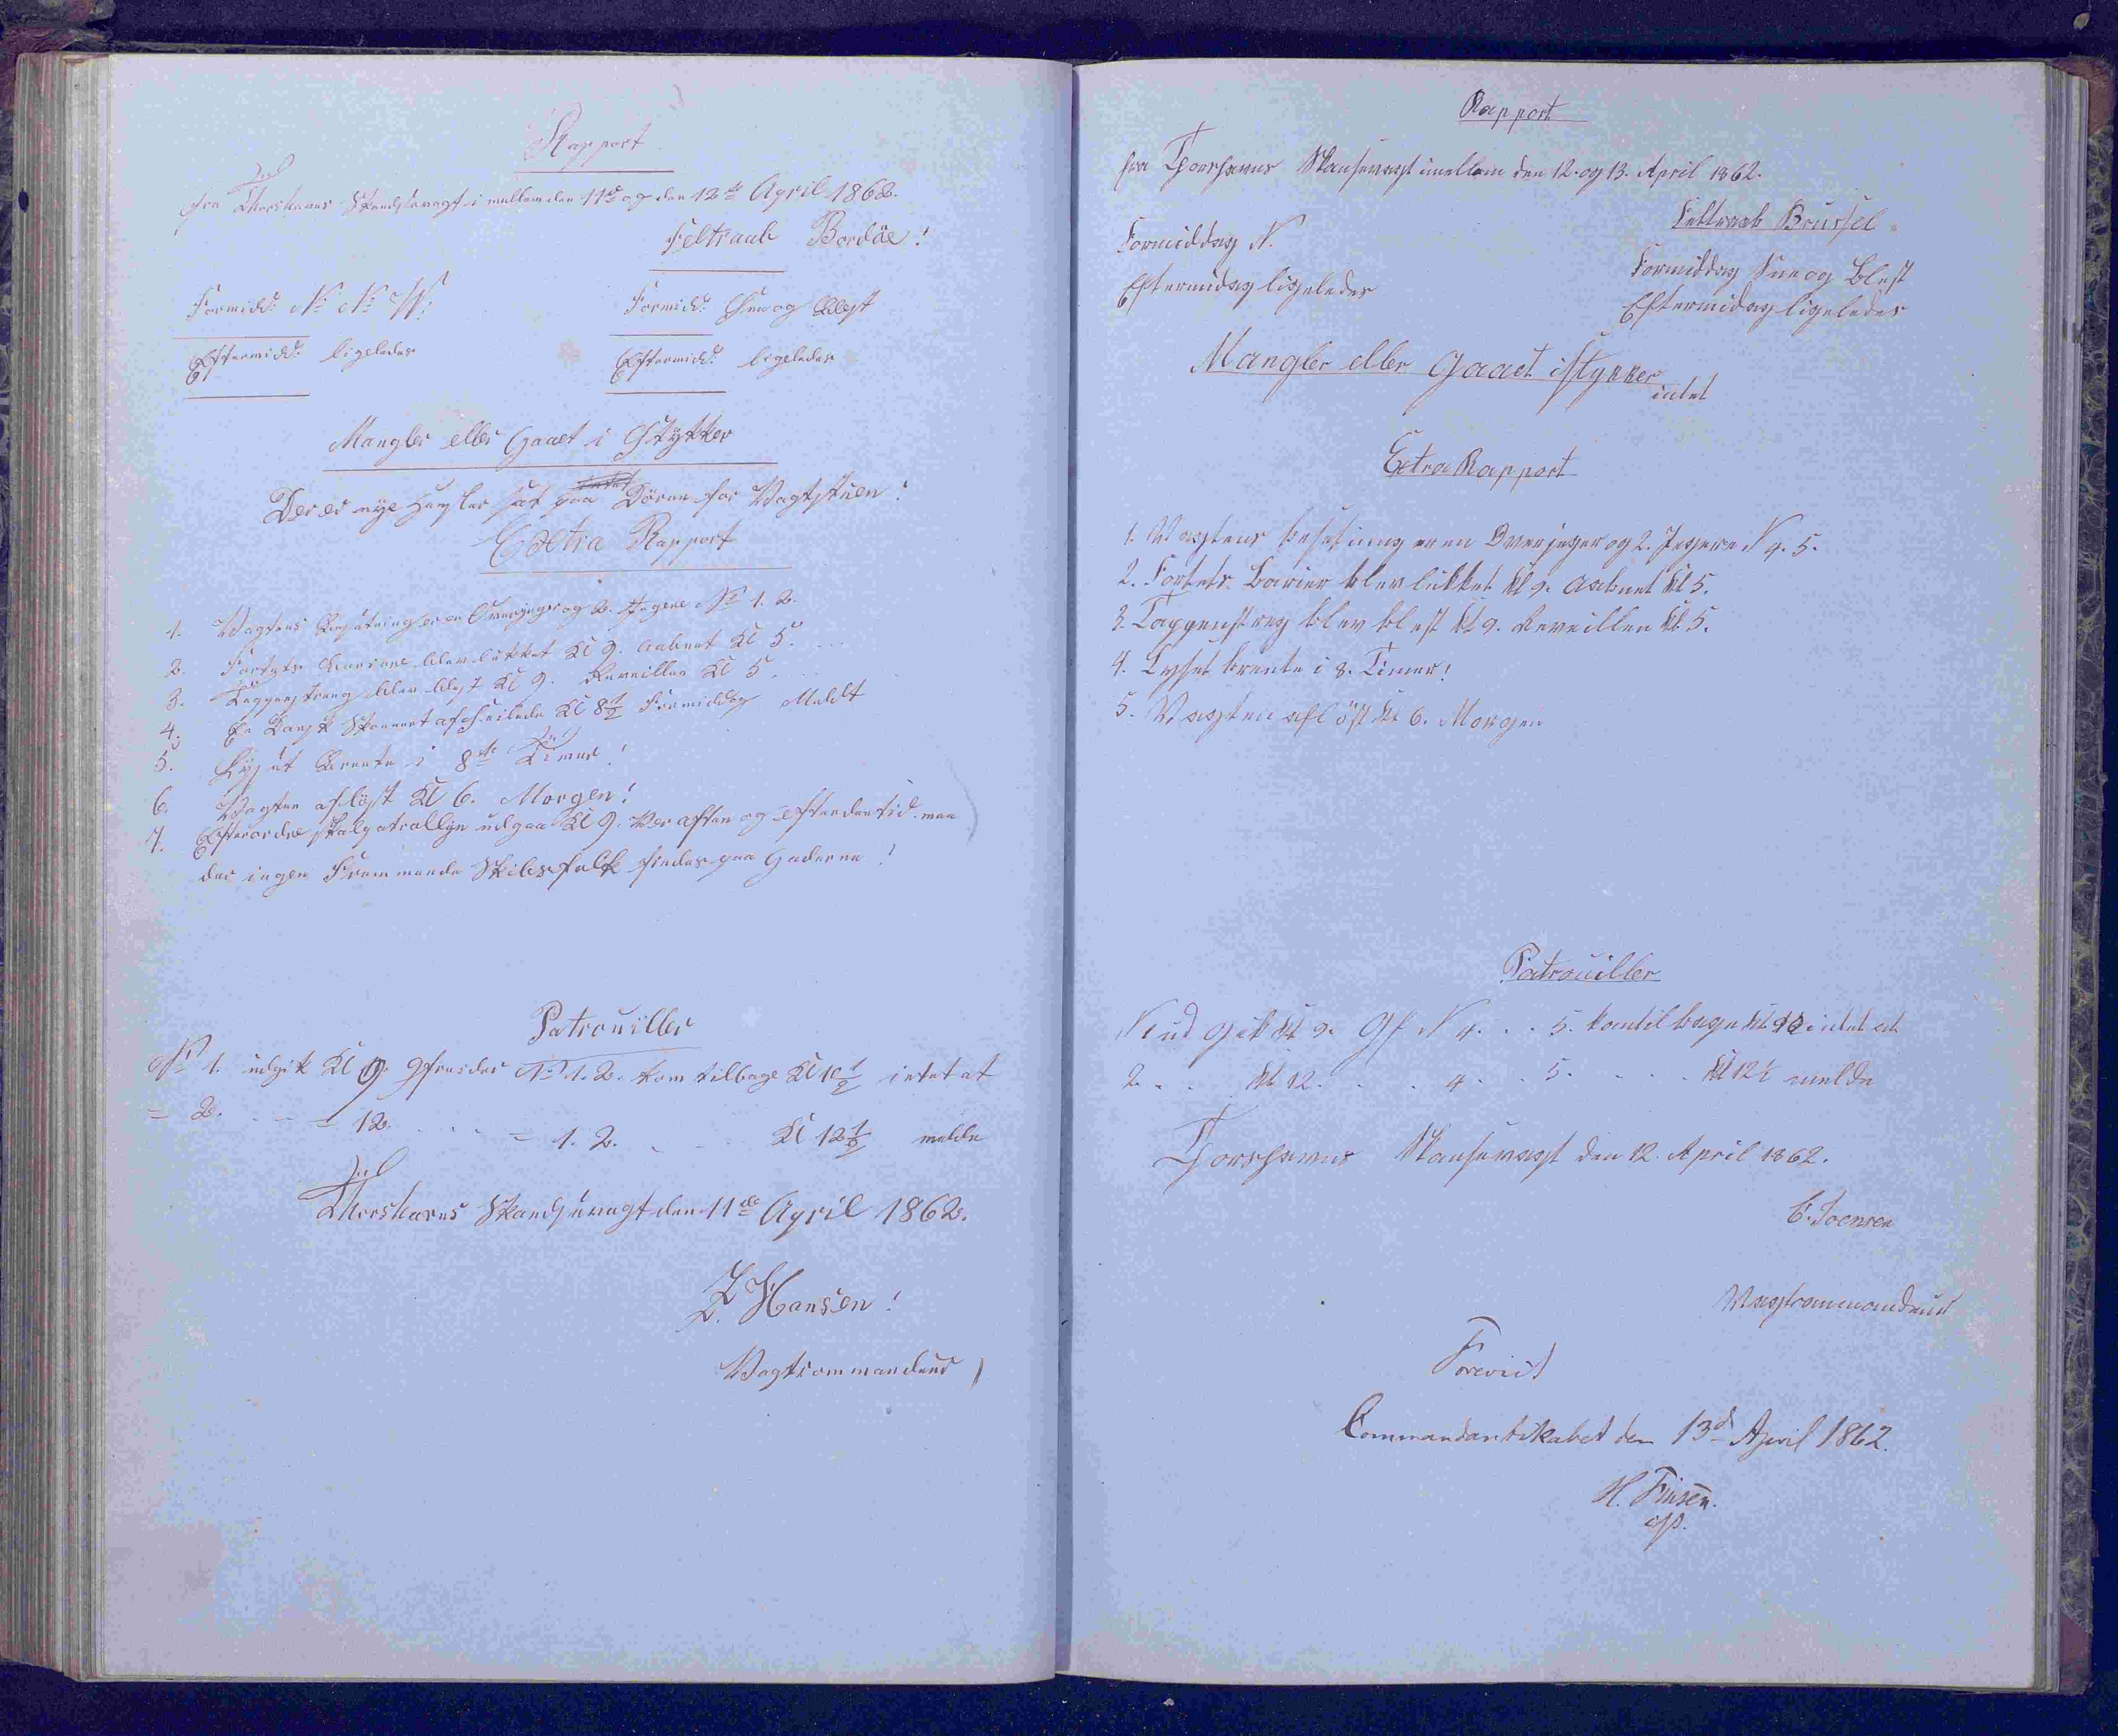 Rapport
fra Thorshavns Skandsevagt i mellem den 11te og den 12te April 1862.
Feltraab Bordöe!
Formidd: No No W:
Formidd: Sne og Blest
Eftermidd: ligeledes
Eftermidd: ligeledes
Mangler eller Gaaet i Stykker
Der er nye Hengsler sat paa Dören for Vagtstuen!
Extra Rapport
1. Vagtens Besætning er en Overjeger og 2. Jegere No 1. 2.
2. Fortets Barriere blev lukket Kl 9. aabnet Kl 5.
3. Tappenstreg blev blest Kl 9. Reveillen Kl 5.
4. En Dansk Skonnert afseilede Kl 8½ Formiddag Meldt
5. Lyset Brente i 8te Timer!
6. Vagten aflöst Kl 6. Morgen!
7. Efter ordre skal patrollijn udgaa Kl 9. Ver aften og efter den tid maa
der ingen Fremmende Skibsfolk findes paa Gaderne!
Patrouiller
No 1. udgik Kl 9. Gfreider No 1. 2. kom tilbage Kl 10½ intet at
= 2. = 12. = 1. 2. Kl 12½ melde
Thorshavns Skandsevagt den 11te April 1862.
Z. Hansen!
Vagtcommandeur
Rapport
fra Thorshavns Skansevagt imellem den 12. og 13. April 1862.
Feltraab Brüssel
Formiddag N.
Formiddag Sne og Blest
Eftermidag ligeledes
Eftermidag ligeledes
Mangler eller Gaaet i Stykker
intet
Extra Rapport
1. Vagtens besetning er en Overjeger og 2. Jegere N 4. 5.
2. Fortets Barier blev lukket Kl 9. aabnet Kl 5.
3. Tappenstreg blev blest Kl 9. Reveillen Kl 5.
4. Lyset brente i 8. Timer!
5. Vagten aflöst Kl 6. Morgen
Patrouiller
N 1 ud gik Kl 9. Gf N 4. . . 5. kom tilbage Kl 10 intet at
2. . . Kl 12. . . . 4. . . 5. . . . . Kl 12½ melde
Thorshavns Skansevagt den 12. April 1862.
C. Joensen
Vagtcommandeur
Forevist
Commandantskabet den 13de April 1862.
H. Finsen.